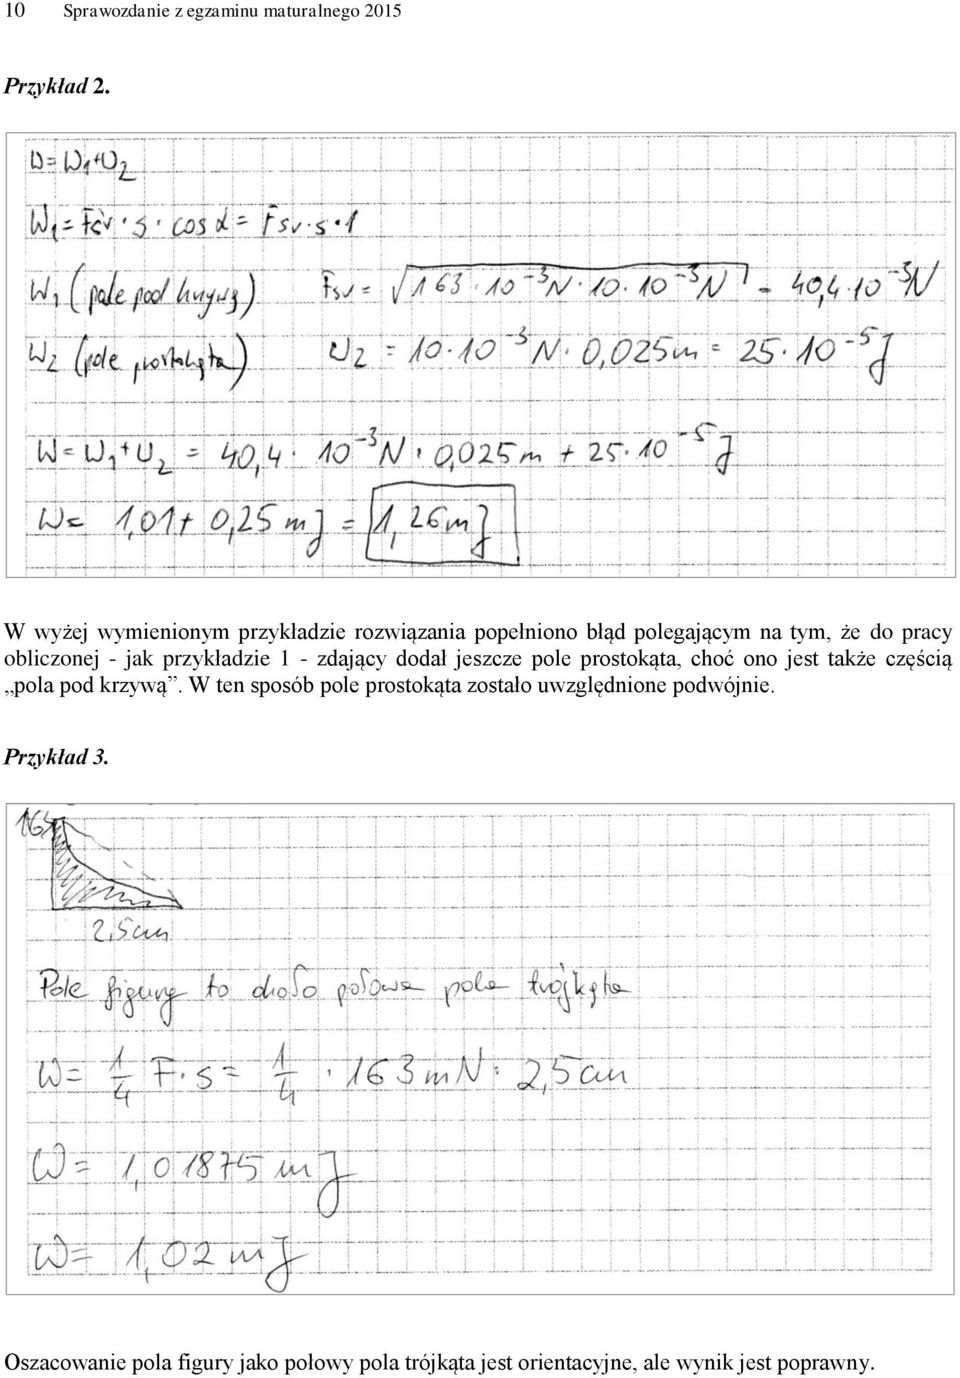 10 Sprawozdanie z egzaminu maturalnego 2015
Przykład 2.
W=W₁+W₂
W₁= Fśr · s · cos α = Fśr · s · 1
W₁ (pole pod krzywą) Fśr = √163 · 10⁻³N · 10 · 10⁻³N = 40,4 · 10⁻³N
W₂ (pole prostokąta) W₂ = 10 · 10⁻³N · 0,025m = 25 · 10⁻⁵J
W = W₁ + W₂ = 40,4 · 10⁻³N · 0,025m + 25 · 10⁻⁵J
W = 1,01 + 0,25 mJ = 1,26mJ.
W wyżej wymienionym przykładzie rozwiązania popełniono błąd polegającym na tym, że do pracy
obliczonej - jak przykładzie 1 - zdający dodał jeszcze pole prostokąta, choć ono jest także częścią
„pola pod krzywą”. W ten sposób pole prostokąta zostało uwzględnione podwójnie.
Przykład 3.
163
2,5cm
Pole figury to około połowa pola trójkąta
W = 1/4 F · s = 1/4 · 163 mN · 2,5cm
W = 1,01875 mJ
W = 1,02 mJ
Oszacowanie pola figury jako połowy pola trójkąta jest orientacyjne, ale wynik jest poprawny.